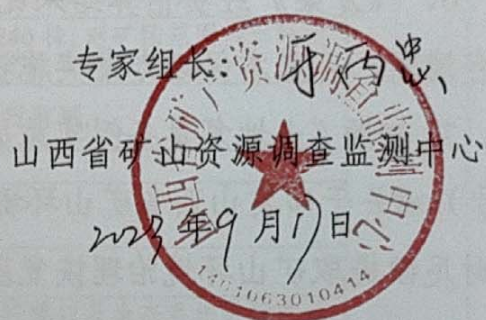 专家组长:
山西省矿山资源调查监测中心
2023年9月17日
山西省矿产资源调查监测中心
1401063010414